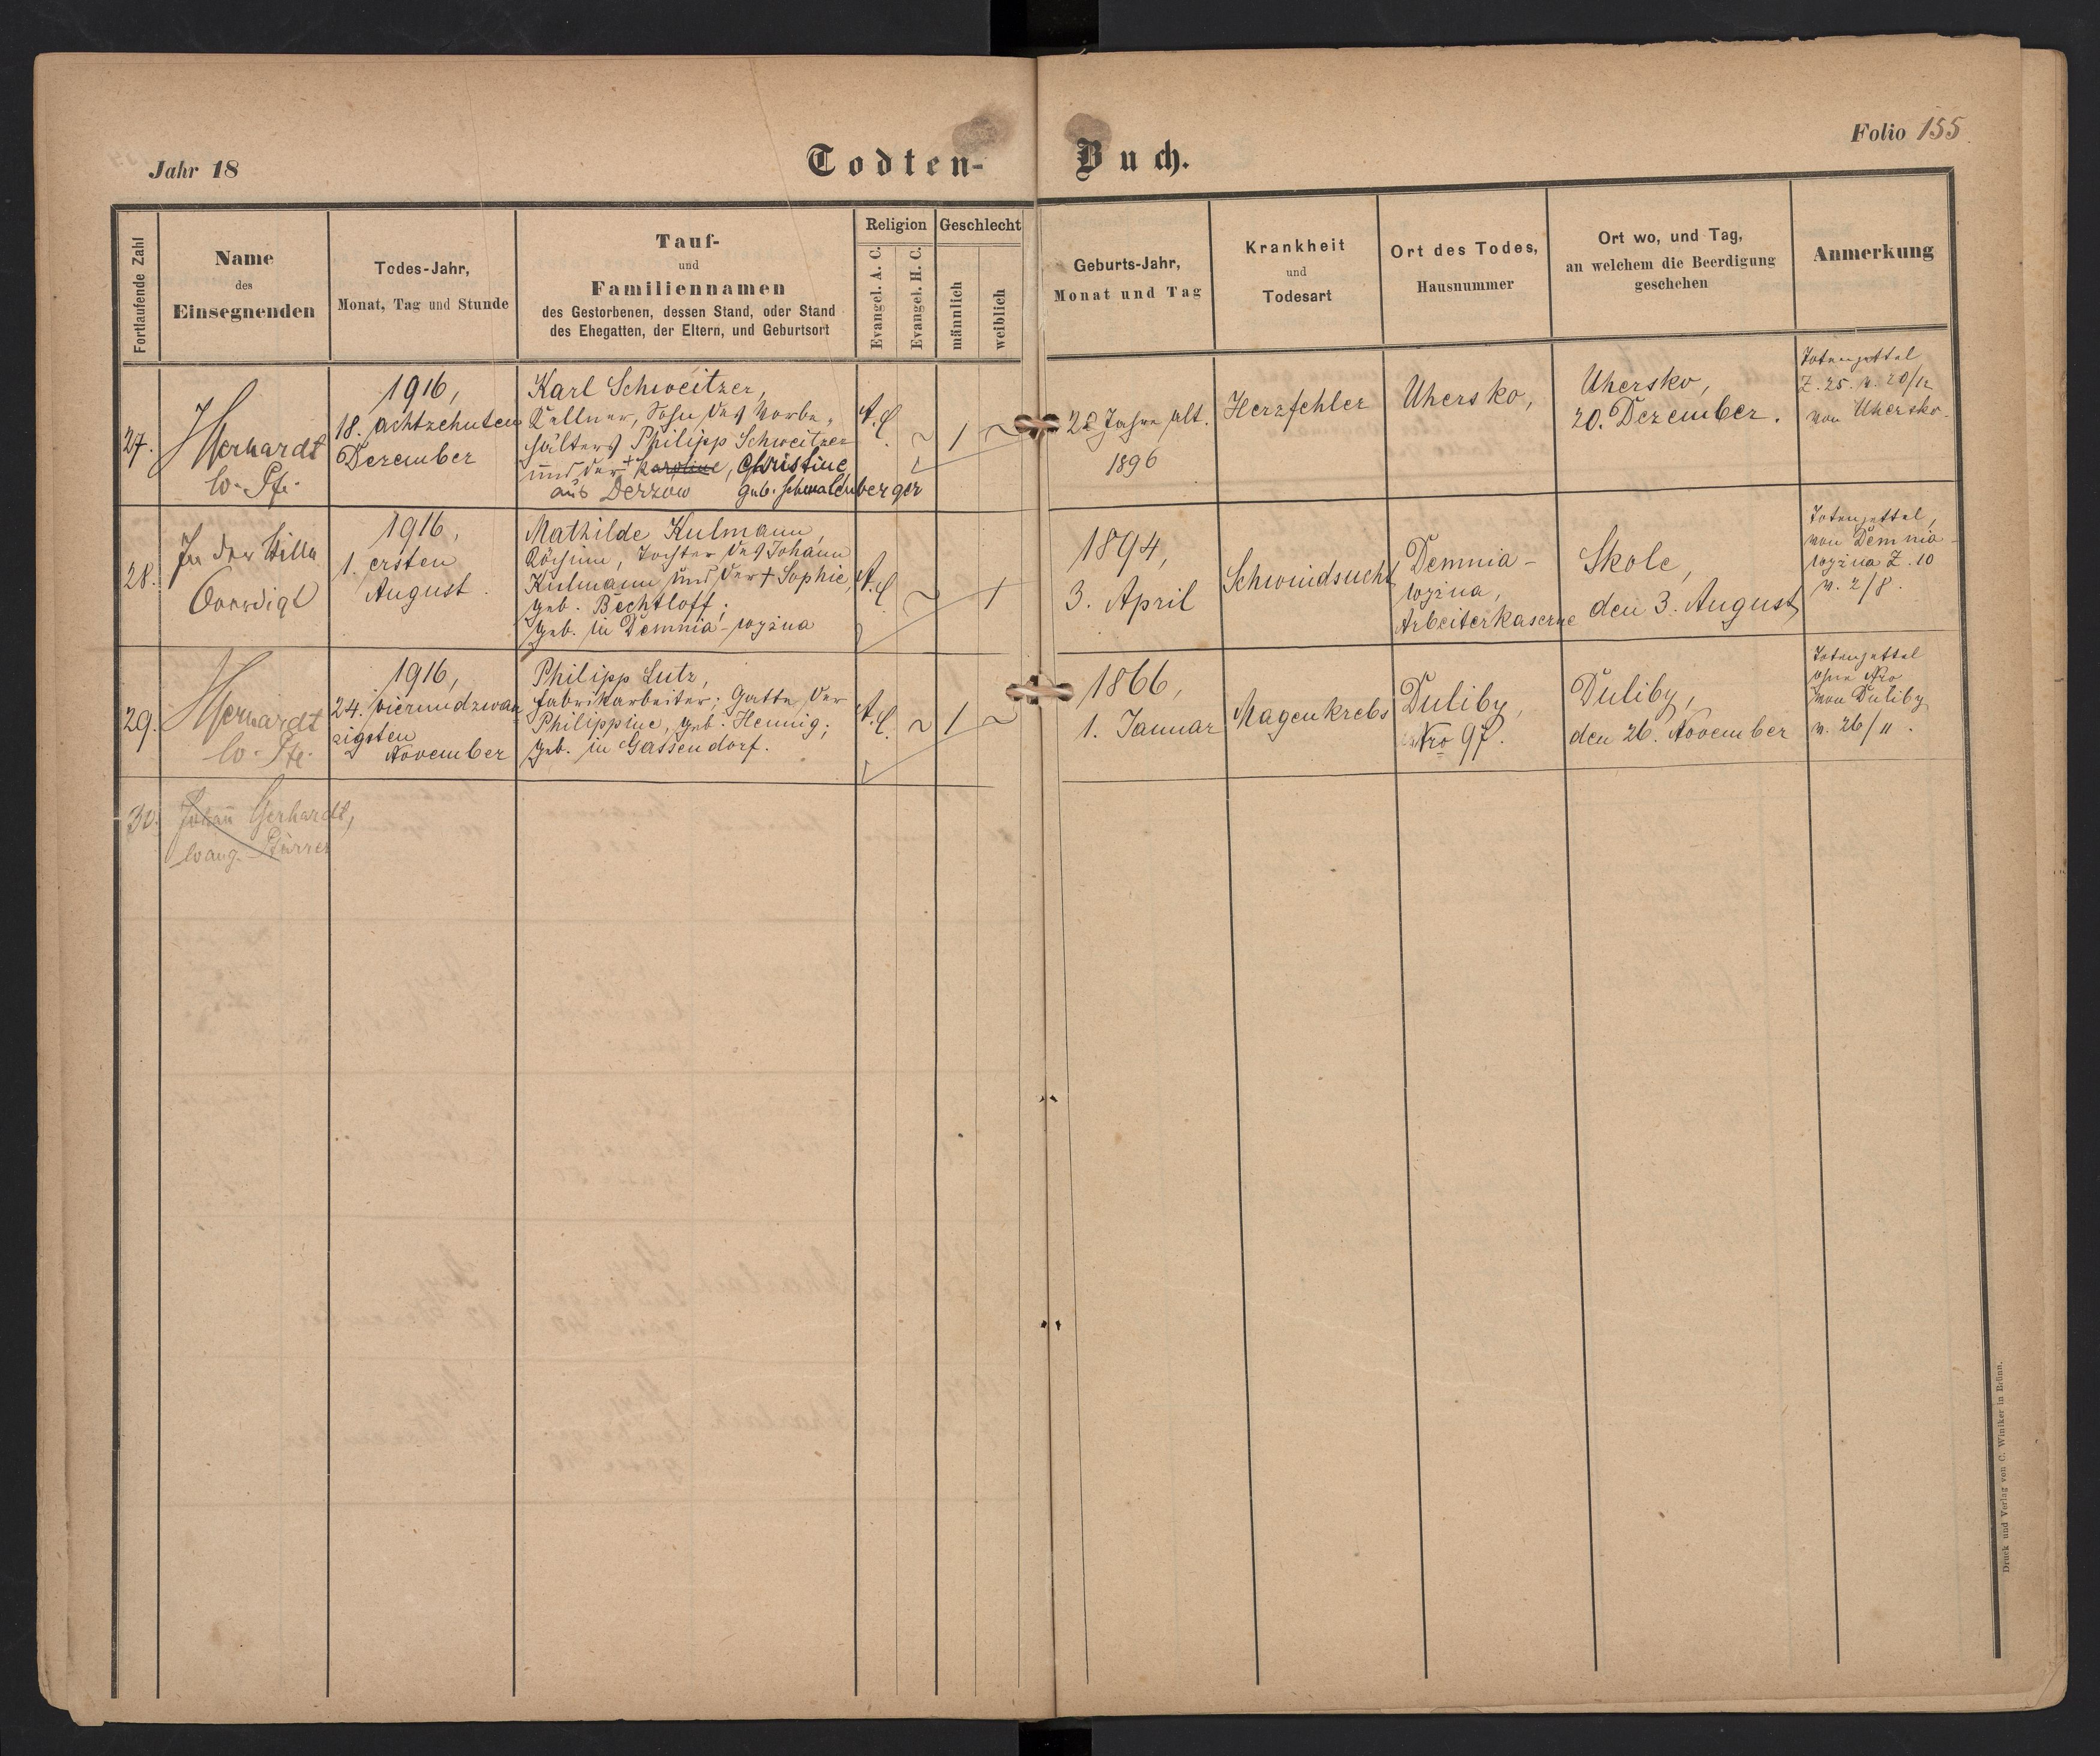 Jahr 18
Todten-Buch.
Folio 155
Fortlaufende Zahl
Name
des
Einsegnenden
Todes-Jahr,
Monat, Tag und Stunde
Tauf-
und
Familiennamen
des Gestorbenen, dessen Stand, oder Stand
des Ehegatten, der Eltern, und Geburtsort
Religion
Evangel. A. C.
Evangel. H. C.
Geschlecht
männlich
weiblich
Geburts-Jahr,
Monat und Tag
Krankheit
und
Todesart
Ort des Todes,
Hausnummer
Ort wo, und Tag,
an welchem die Beerdigung
geschehen
Anmerkung
27.
Gerhardt
1916,
18. achtzehnten
Dezember
Karl Schweitzer,
Kellner, Sohn des Vorbe-
hälters Philipp Schweitzer
und der + Karoline, Christine,
aus Derzow geb. Schmalenberger
A. C.
~
1
~
22 Jahre alt.
1896
Herzfehler
Uhersko,
Uhersko,
20. Dezember.
Totenzettel
Z. 25. v. 20/12
von Uhersko.
28.
In der Stille
beerdigt
1916,
1. ersten
August.
Mathilde Kulmann,
Köchin, Tochter des Johann
Kulmann und der + Sophie,
geb. Bechtloff;
geb. in Demnia-wyzna
A. C.
~
1
1894,
3. April
Schwindsucht
Demnia-
wyzna,
Arbeiterkaserne
Skole,
den 3. August,
Totenzettel,
von Demnia-
wyzna Z. 10
v. 2/8.
29.
Gerhardt
1916,
24. vierundzwan
zigsten
November
Philipp Lutz,
Fabrikarbeiter; Gatte der
Philippine, geb. Hennig;
geb. in Gassendorf.
A. C.
~
1
~
1866,
1. Januar
Magenkrebs
Duliby,
Nro 97.
Duliby,
den 26. November
Totenzettel
ohne Nro
von Duliby
v. 26/11.
30.
Johann Gerhardt,
evang. Pfarrer
Druck und Verlag von C. Winiker in Brünn.